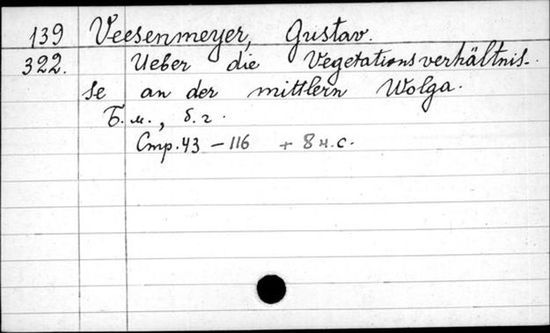 139 Veesenmeyer, Gustav.
322. Ueber die Vegetationsverhältnis-
se an der mittlern Wolga.
Б.м., б.г.
Стр. 43 – 116 + 8 н.с.